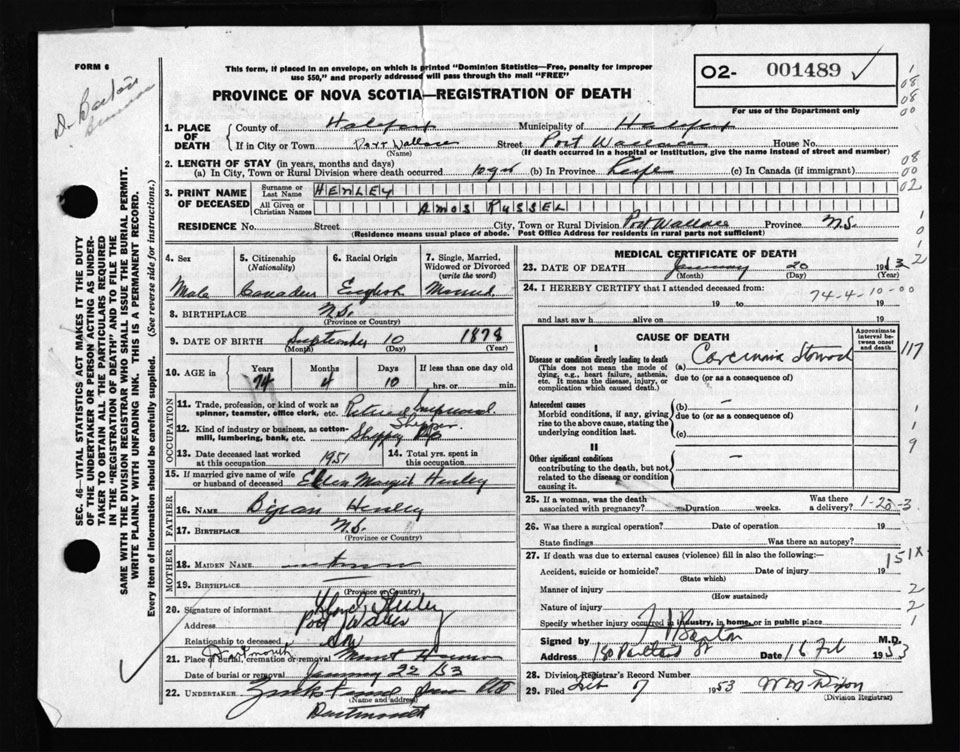 FORM 6
This form, if placed in an envelope, on which is printed "Dominion Statistics—Free, penalty for improper
use $50," and properly addressed will pass through the mail "FREE"
PROVINCE OF NOVA SCOTIA—REGISTRATION OF DEATH
O2- 001489 ✓
For use of the Department only
1. PLACE OF DEATH
County of Halifax Municipality of Halifax
If in City or Town Port Wallace (Name) Street Port Wallace House No.
(If death occurred in a hospital or institution, give the name instead of street and number)
2. LENGTH OF STAY (in years, months and days)
(a) In City, Town or Rural Division where death occurred 10 yrs (b) In Province Life (c) In Canada (if immigrant)
3. PRINT NAME OF DECEASED
Surname or Last Name HENLEY
All Given or Christian Names AMOS RUSSEL
RESIDENCE No. Street City, Town or Rural Division Port Wallace Province N.S.
(Residence means usual place of abode. Post Office Address for residents in rural parts not sufficient)
4. Sex
Male
5. Citizenship (Nationality)
Canadian
6. Racial Origin
English
7. Single, Married, Widowed or Divorced (write the word)
Married
8. BIRTHPLACE N.S.
(Province or Country)
9. DATE OF BIRTH September 10 1878
(Month) (Day) (Year)
10. AGE in Years 74 Months 4 Days 10 If less than one day old hrs. or min.
OCCUPATION
11. Trade, profession, or kind of work as spinner, teamster, office clerk, etc. Retired
12. Kind of industry or business, as cotton-mill, lumbering, bank, etc.
13. Date deceased last worked at this occupation 1951
14. Total yrs. spent in this occupation
15. If married give name of wife or husband of deceased Ellen Henley
FATHER
16. NAME Henley
17. BIRTHPLACE N.S.
(Province or Country)
MOTHER
18. MAIDEN NAME
19. BIRTHPLACE —
(Province or Country)
20. Signature of informant Lloyd Henley
Address Port Wallace
Relationship to deceased Son
21. Place of burial, cremation or removal Dartmouth Mount Hermon
Date of burial or removal January 22 53
22. UNDERTAKER
(Name and address)
Dartmouth
MEDICAL CERTIFICATE OF DEATH
23. DATE OF DEATH January 20 1953
(Month) (Day) (Year)
24. I HEREBY CERTIFY that I attended deceased from:
19 to 19
74-4-10-00
and last saw h alive on 19
CAUSE OF DEATH
Approximate interval between onset and death
I
Disease or condition directly leading to death
(This does not mean the mode of dying, e.g., heart failure, asthenia, etc. It means the disease, injury, or complication which caused death.)
(a) Carcinoma Stomach
due to (or as a consequence of)
Antecedent causes
Morbid conditions, if any, giving rise to the above cause, stating the underlying condition last.
(b) —
due to (or as a consequence of)
(c)
II
Other significant conditions
contributing to the death, but not related to the disease or condition causing it.
—
25. If a woman, was the death associated with pregnancy? Duration weeks. Was there a delivery?
1-20-3
26. Was there a surgical operation? Date of operation 19
State findings Was there an autopsy?
27. If death was due to external causes (violence) fill in also the following:—
Accident, suicide or homicide? Date of injury 19
(State which)
151X
Manner of injury 2
(How sustained)
Nature of injury 2
Specify whether injury occurred in industry, in home, or in public place 1
Signed by Barton M.D.
Address 180 Portland St Date 16 Feb 1953
28. Division Registrar's Record Number
29. Filed Feb 7 1953
(Division Registrar)
SEC. 46—VITAL STATISTICS ACT MAKES IT THE DUTY
OF THE UNDERTAKER OR PERSON ACTING AS UNDER-
TAKER TO OBTAIN ALL THE PARTICULARS REQUIRED
IN THE "REGISTRATION OF DEATH" AND TO FILE THE
SAME WITH THE DIVISION REGISTRAR WHO SHALL ISSUE THE BURIAL PERMIT.
WRITE PLAINLY WITH UNFADING INK. THIS IS A PERMANENT RECORD.
Every item of information should be carefully supplied. (See reverse side for instructions.)
117